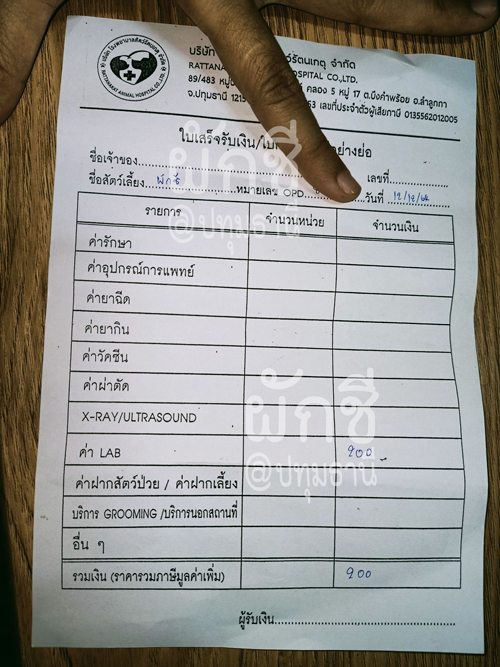 บริษัท โรงพยาบาลสัตว์รัตนเกตุ จำกัด
RATTANAKAT ANIMAL HOSPITAL CO.,LTD.
บริษัท ว์รัตนเกตุ จำกัด
RATTANA HOSPITAL CO.,LTD.
89/483 หมู่ คลอง 5 หมู่ 17 ต.บึงคำพร้อย อ.ลำลูกกา
จ.ปทุมธานี 1215 53 เลขที่ประจำตัวผู้เสียภาษี 0135562012005
ใบเสร็จรับเงิน/ใบ อย่างย่อ
ชื่อเจ้าของ เลขที่
ชื่อสัตว์เลี้ยง ผักชี หมายเลข OPD วันที่ 12/12/64
รายการ จำนวนหน่วย จำนวนเงิน
ค่ารักษา
ค่าอุปกรณ์การแพทย์
ค่ายาฉีด
ค่ายากิน
ค่าวัคซีน
ค่าผ่าตัด
X-RAY/ULTRASOUND
ค่า LAB 900
ค่าฝากสัตว์ป่วย / ค่าฝากเลี้ยง
บริการ GROOMING /บริการนอกสถานที่
อื่น ๆ
รวมเงิน (ราคารวมภาษีมูลค่าเพิ่ม) 900
ผู้รับเงิน
ผักชี
@ปทุมธานี
ผักชี
@ปทุมธานี